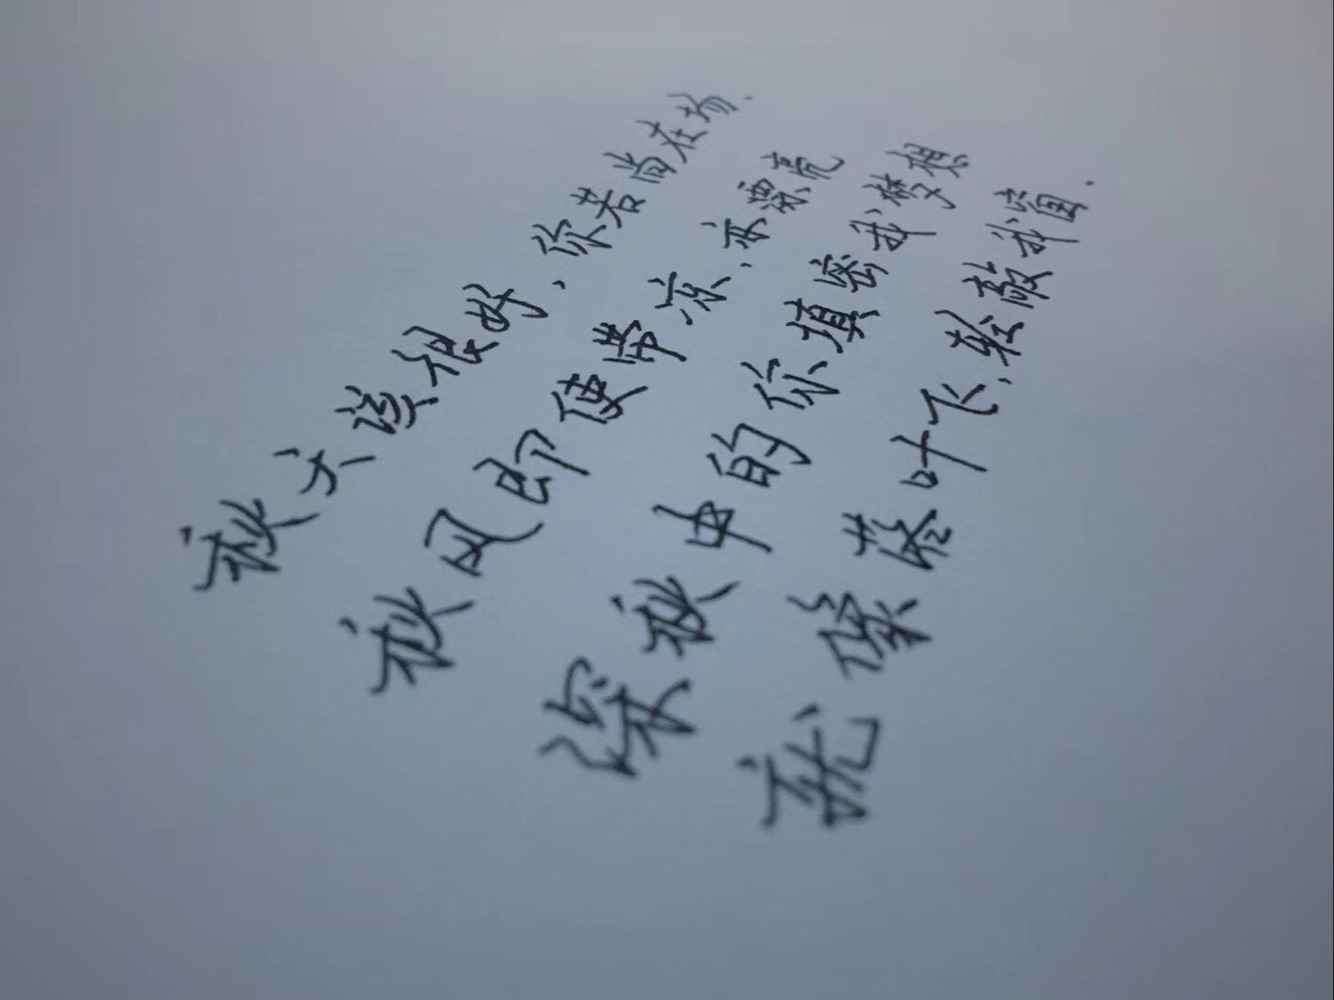 秋天该很好，你若尚在场.
秋风即使带凉，亦漂亮
深秋中的你填密我梦想
就像落叶飞，轻敲我窗.